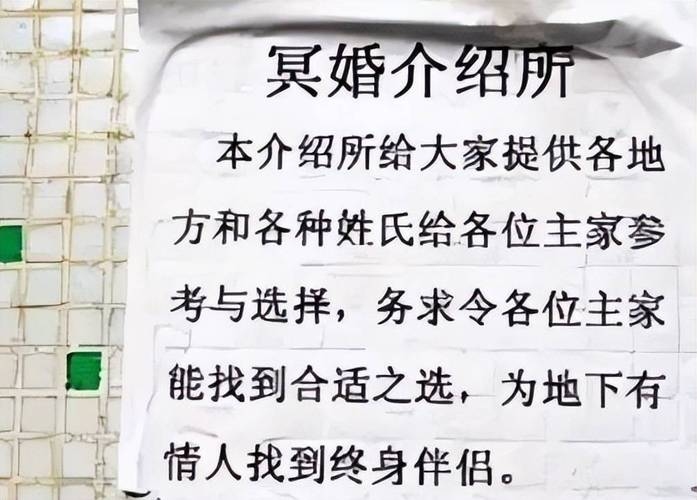 冥婚介绍所
本介绍所给大家提供各地
方和各种姓氏给各位主家参
考与选择，务求令各位主家
能找到合适之选，为地下有
情人找到终身伴侣。